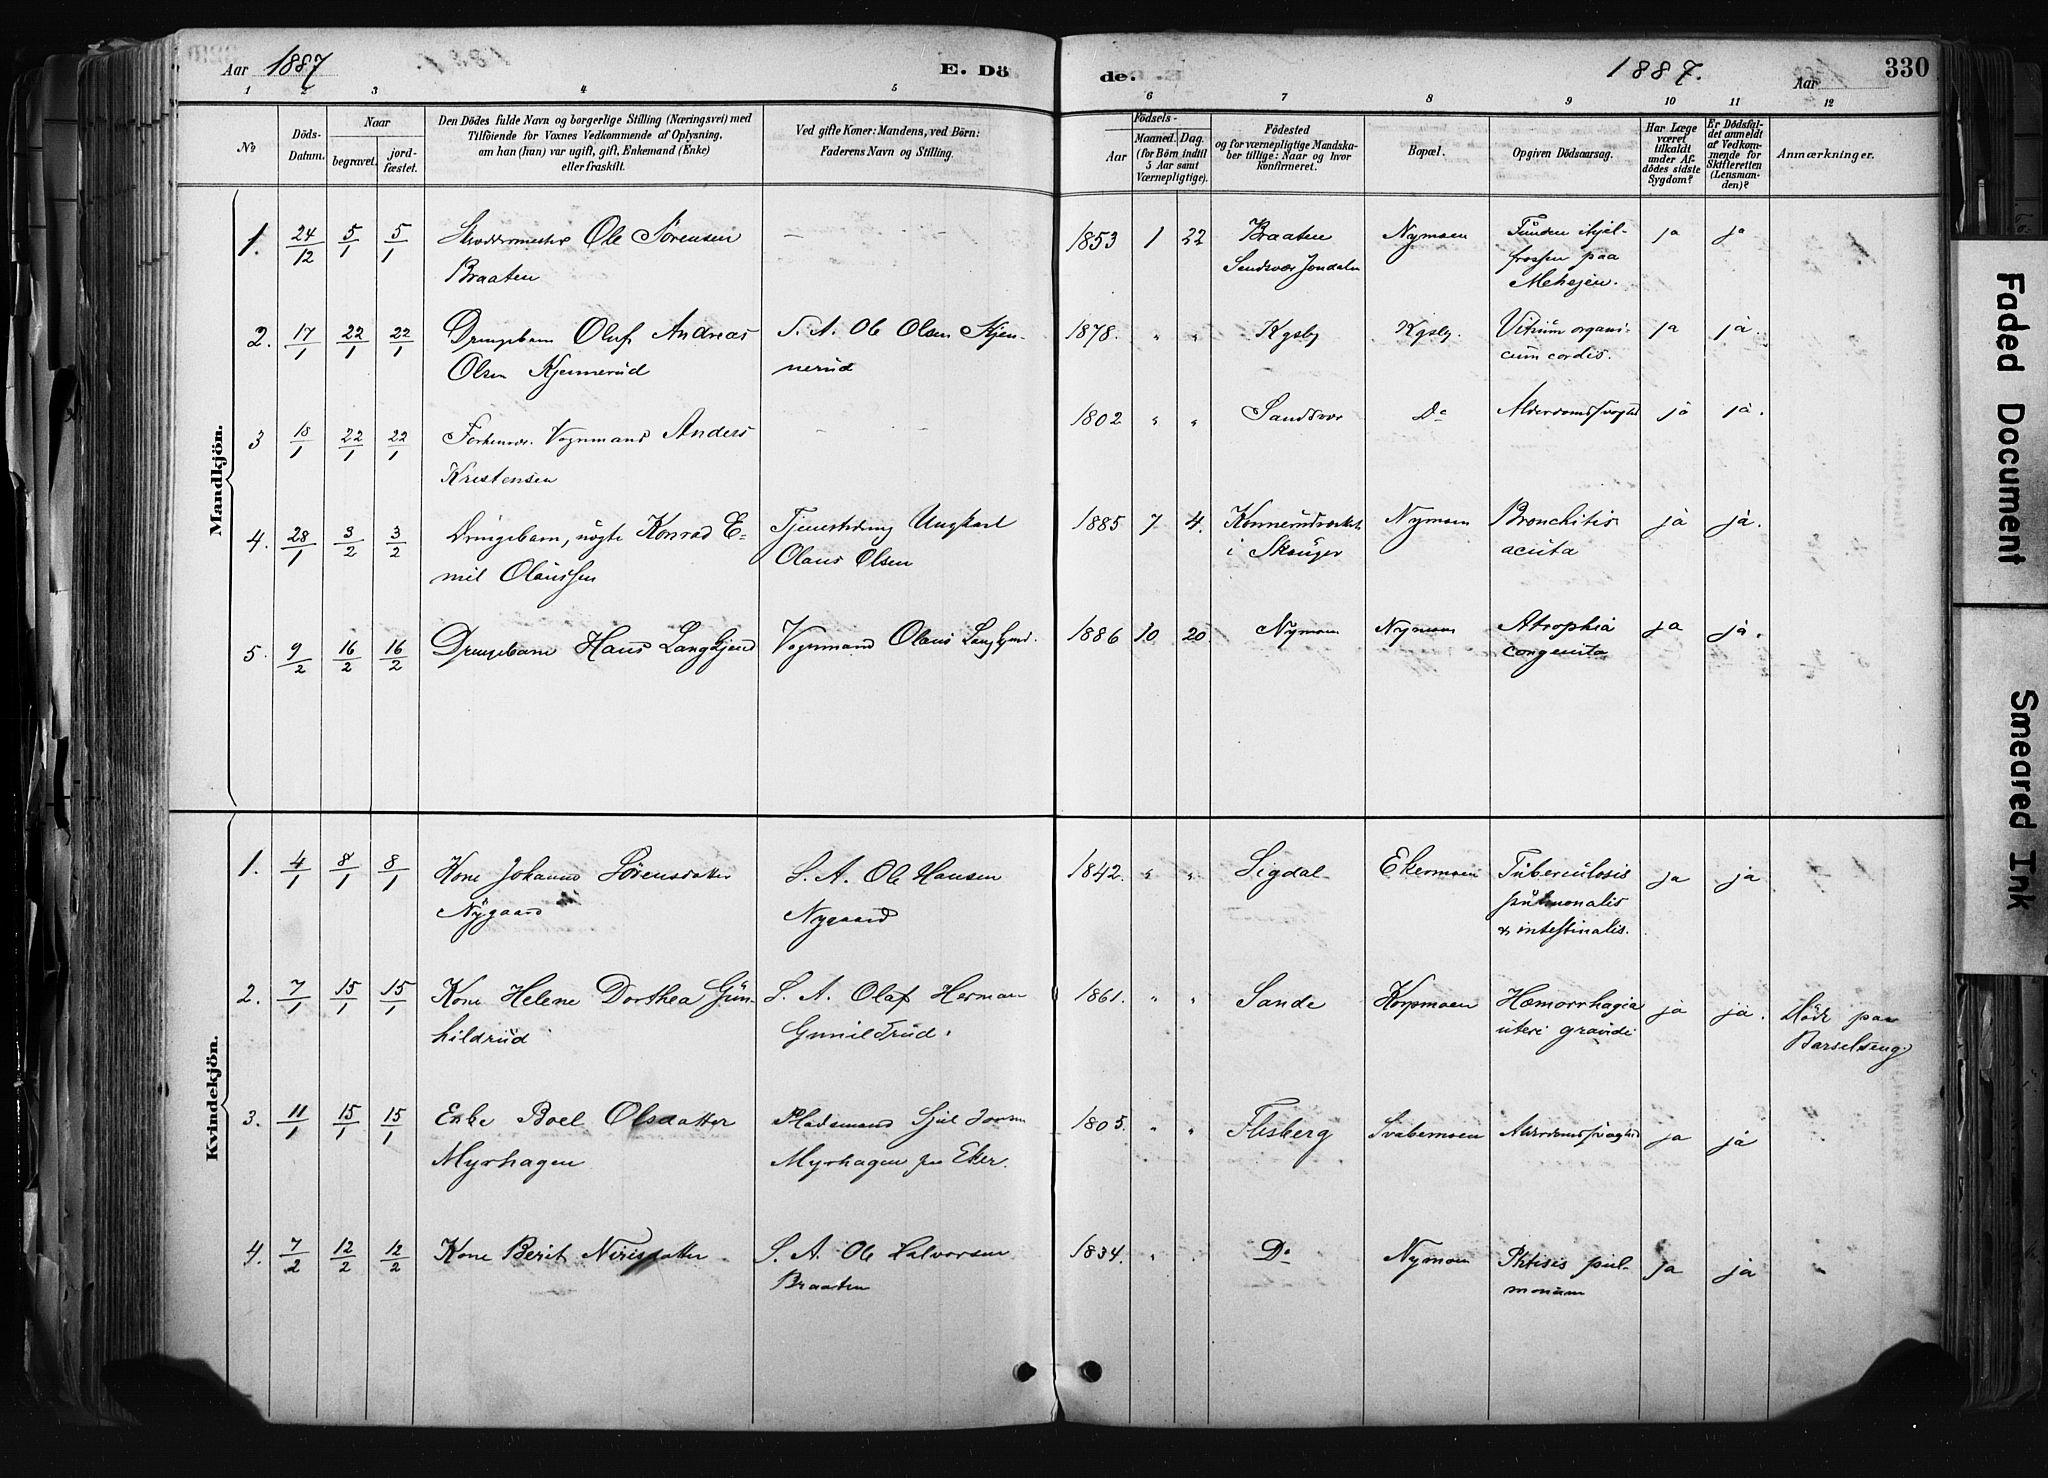 Aar 1887 E. Döde. 1887. Aar 330
1 2 3 4 5 6 7 8 9 10 11 12
No
Döds-Datum.
Naar
begravet. jordfæstet.
Den Dödes fulde Navn og borgerlige Stilling (Næringsvei) med
Tilföiende for Voxnes Vedkommende af Oplysning,
om han (han) var ugift, gift, Enkemand (Enke)
eller fraskilt.
Ved gifte Koner: Mandens, ved Börn:
Faderens Navn og Stilling.
Födsels-
Aar
Maaned. Dag.
(for Börn indtil
5 Aar samt
Værnepligtige).
Födested
og for værnepligtige Mandskaber tillige: Naar og hvor
konfirmeret.
Bopæl.
Opgiven Dödsaarsag.
Har Læge
været
tilkaldt
under Afdödes sidste
Sygdom?
Er Dödsfaldet anmeldt
af Vedkommende for
Skifteretten
(Lensmanden)?
Anmærkninger.
Mandkjön.
1. 24/12 5/1 5/1 Ole Sörensen – 1853 1 22 Braaten Nymoen Funden ihjel- ja ja
Braaten Sandsvær Jondalen frossen paa
Mehejen.
2. 17/1 22/1 22/1 Drengebarn Oluf Andreas S. A. Ole Olsen Kjen- 1878. " " Kgsbg Kgsbg. Vitium organi- ja ja.
Olsen Kjennerud nerud cum cordis.
3 18/1 22/1 22/1 Vognmand Anders – – 1802 " " Sandsvær Do Alderdomssvaghed ja ja.
Kristensen
4. 28/1 3/2 3/2 Drengebarn, Konrad E- Ungkarl 1885 7 4. Nymoen Bronchitis ja ja.
mil Olaussen Olaus Olsen i Skouger acuta
5. 9/2 16/2 16/2 Drengebarn Hans Langkjend Vognmand Olaus Langkjend. 1886 10 20 Nymoen Nymoen Atrophia ja ja.
congenita
Kvindekjön.
1. 4/1 8/1 8/1 Kone Johanne Sörensdatter S. A. Ole Hansen 1842. " " Sigdal Ekermoen Tuberculosis ja ja
Nygaard Nygaard pulmonalis
& intestinalis.
2. 7/1 15/1 15/1 Kone Helene Dorthea Gun- S. A. Olaf Herman 1861. " " Sande Korpmoen Hæmorrhagia ja ja. Död paa
hildrud Gunildrud. uteri gravidi Barselseng.
3. 11/1 15/1 15/1 Enke Boel Olsdatter Pladsmand 1805. " " Flesberg Svabemoen Alderdomssvaghed ja ja
Myrhagen Myrhagen paa Eker.
4. 7/2 12/2 12/2 Kone Berit Nirisdatter S. A. Ole Halvorsen 1834. " Do Nymoen Phtisis pul- ja ja
Braaten monum
Faded Document
Smeared Ink